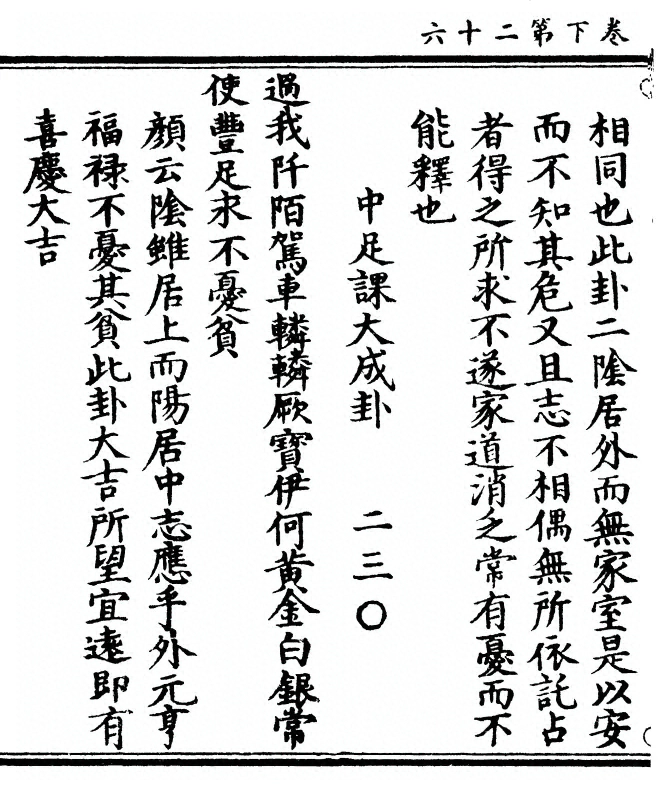 六十二第下卷
相同也此卦二陰居外而無家室是以安
而不知其危又且志不相偶無所依託占
者得之所求不遂家道消乏常有憂而不
能釋也
中足課大成卦 二三〇
過我阡陌駕車轔轔厥寶伊何黃金白銀常
使豐足求不憂貧
顏云陰雖居上而陽居中志應乎外元亨
福祿不憂其貧此卦大吉所望宜遠即有
喜慶大吉